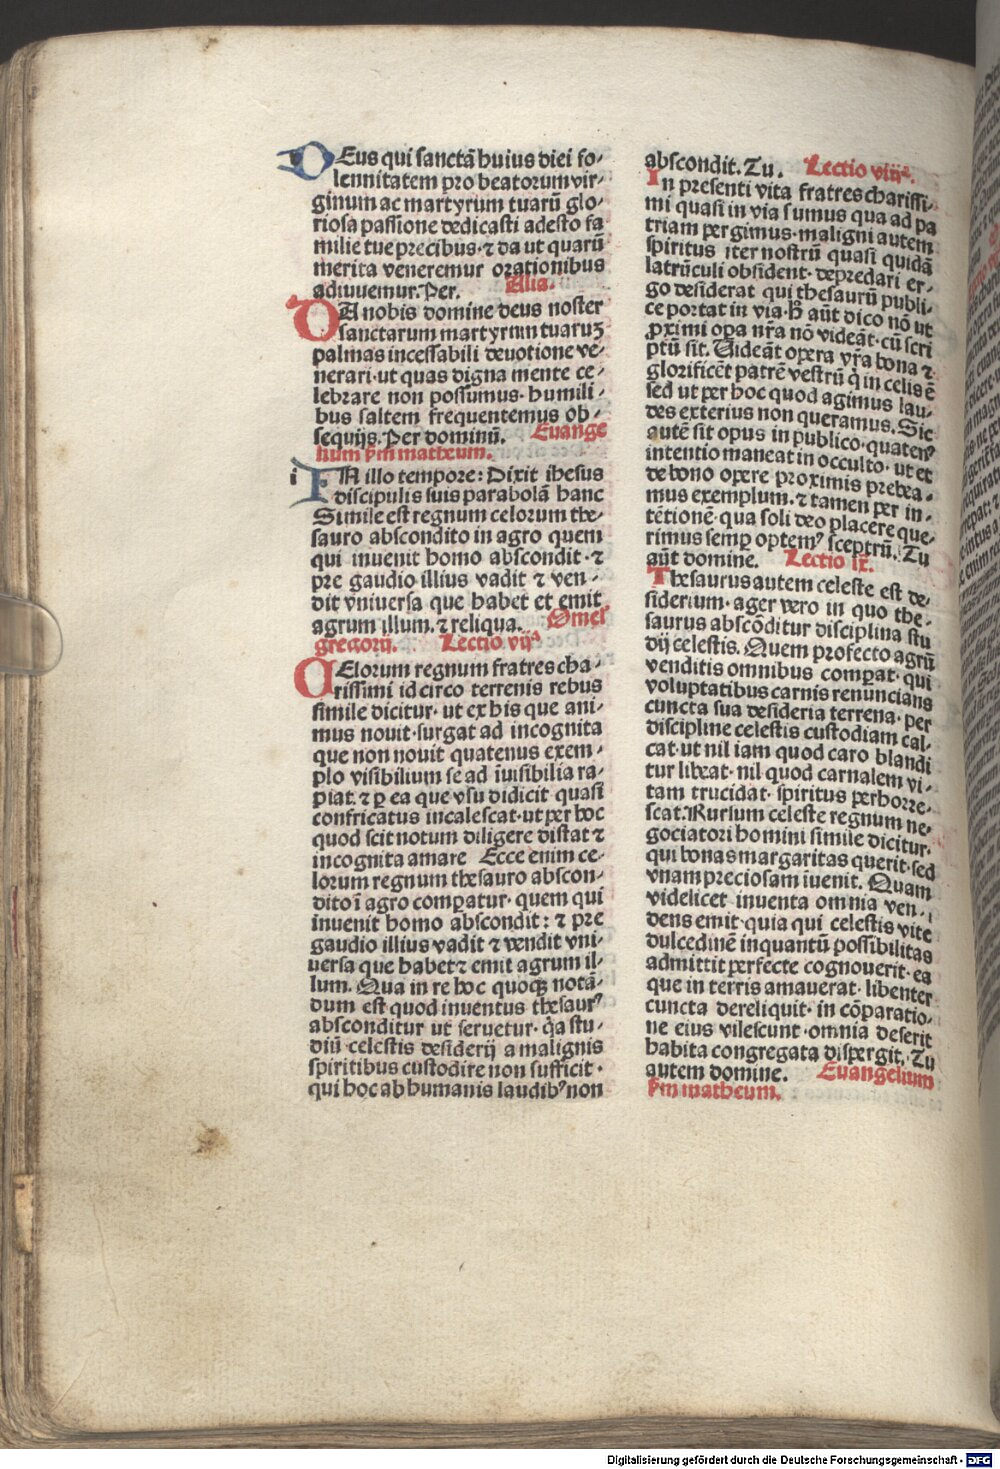 DEus qui sanctā huius diei so⸗
lennitatem pro beatorum vir⸗
ginum ac martyrum tuarū glo⸗
riosa passione dedicasti adesto fa
milie tue precibus·⁊ da ut quarū
merita veneremur orationibus
adiuuemur.Per. Alia.
DA nobis domine deus noster
sanctarum martyrum tuaruꝫ
palmas incessabili deuotione ve⸗
nerari·ut quas digna mente ce⸗
lebrare non possumus·humili⸗
bus saltem frequentemus ob⸗
sequijs.Per dominū. Euange
lium ꝑm matheum.
i IN illo tempore: Dixit ihesus
discipulis suis parabolā hanc
Simile est regnum celorum the⸗
sauro abscondito in agro quem
qui inuenit homo abscondit·⁊
pre gaudio illius vadit ⁊ ven⸗
dit vniuersa que habet et emit
agrum illum.⁊ reliqua. Omel'
gregorij. Lectio vijᵃ
CElorum regnum fratres cha⸗
rissimi idcirco terrenis rebus
simile dicitur·ut ex his que ani⸗
mus nouit·surgat ad incognita
que non nouit quatenus exem⸗
plo visibilium se ad īuisibilia ra⸗
piat.⁊ ꝑ ea que vsu didicit quasi
confricatus incalescat·ut per hoc
quod scit notum diligere discat ⁊
incognita amare Ecce enim ce⸗
lorum regnum thesauro abscon⸗
dito ī agro comꝑatur·quem qui
inuenit homo abscondit:⁊ pre
gaudio illius vadit ⁊ vendit vni⸗
uersa que habet⁊ emit agrum il⸗
lum. Qua in re hoc quoqꝫ notā⸗
dum est quod inuentus thesaurꝰ
absconditur ut seruetur·q̇a stu⸗
diū celestis desiderij a malignis
spiritibus custodire non sufficit·
qui hoc ab humanis laudibꝰ non
abscondit.Tu. Lectio viijᵃ.
In presenti vita fratres charissi⸗
mi quasi in via sumus qua ad pa
triam pergimus·maligni autem
spiritus iter nostrū quasi quidā
latrūculi obsident·depredari er⸗
go desiderat qui thesaurū publi⸗
ce portat in via·ħ aūt dico nō ut
ꝓximi oꝑa nr̄a nō videāt·cū scri
ptū sit. Uideāt opera vr̄a bona ⁊
glorificēt patrē vestrū q̇ in celis ē
sed ut per hoc quod agimus lau⸗
des exterius non queramus. Sic
autē sit opus in publico·quatenꝰ
intentio maneat in occulto·ut et
de bono opere proximis prebea⸗
mus exemplum.⁊ tamen per in⸗
tētionē·qua soli deo placere que⸗
rimus semꝑ optemꝰ sceptrū. Tu
aūt domine. Lectio ix.
Thesaurus autem celeste est de⸗
siderium·ager vero in quo the⸗
saurus abscōditur disciplina stu
dij celestis. Quem profecto agrū
venditis omnibus comꝑat·qui
voluptatibus carnis renuncians
cuncta sua desideria terrena·per
discipline celestis custodiam cal⸗
cat·ut nil iam quod caro blandi
tur libeat·nil quod carnalem vi⸗
tam trucidat·spiritus perhorre⸗
scat.Rursum celeste regnum ne⸗
gociatori homini simile dicitur.
qui bonas margaritas querit·sed
vnam preciosam īuenit. Quam
videlicet inuenta omnia ven⸗
dens emit·quia qui celestis vite
dulcedinē inquantū possibilitas
admittit perfecte cognouerit·ea
que in terris amauerat·libenter
cuncta dereliquit·in cōparatio⸗
ne eius vilescunt·omnia deserit
habita congregata dispergit. Tu
autem domine. Euangelium
ꝑm matheum.
Digitalisierung gefördert durch die Deutsche Forschungsgemeinschaft - DFG